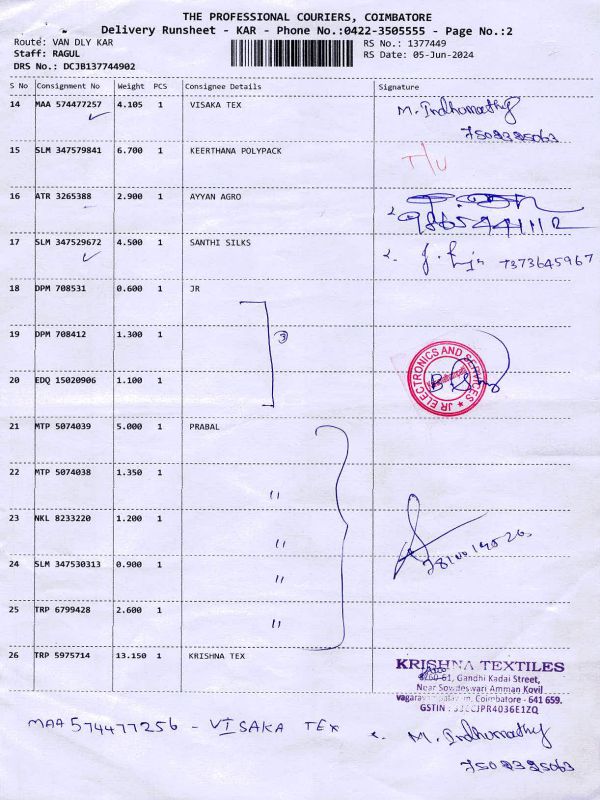 THE PROFESSIONAL COURIERS, COIMBATORE
Delivery Runsheet - KAR - Phone No.:0422-3505555 - Page No.:2
Route: VAN DLY KAR
RS No.: 1377449
Staff: RAGUL
RS Date: 05-Jun-2024
DRS No.: DCJB137744902
S No Consignment No Weight PCS Consignee Details Signature
14 MAA 574477257 4.105 1 VISAKA TEX M. Indhumathy
15 SLM 347579841 6.700 1 KEERTHANA POLYPACK T/U
16 ATR 3265388 2.900 1 AYYAN AGRO
17 SLM 347529672 4.500 1 SANTHI SILKS 7373645967
18 DPM 708531 0.600 1 JR
19 DPM 708412 1.300 1 3
JR ELECTRONICS AND SERVICES
20 EDQ 15020906 1.100 1
21 MTP 5074039 5.000 1 PRABAL
22 MTP 5074038 1.350 1 "
23 NKL 8233220 1.200 1 "
24 SLM 347530313 0.900 1 "
25 TRP 6799428 2.600 1 "
26 TRP 5975714 13.150 1 KRISHNA TEX
KRISHNA TEXTILES
61, Gandhi Kadai Street,
Near Sowdeswari Amman Kovil
Coimbatore - 641 659.
GSTIN :
MAA 574477256 - VISAKA TEX M. Indhumathy